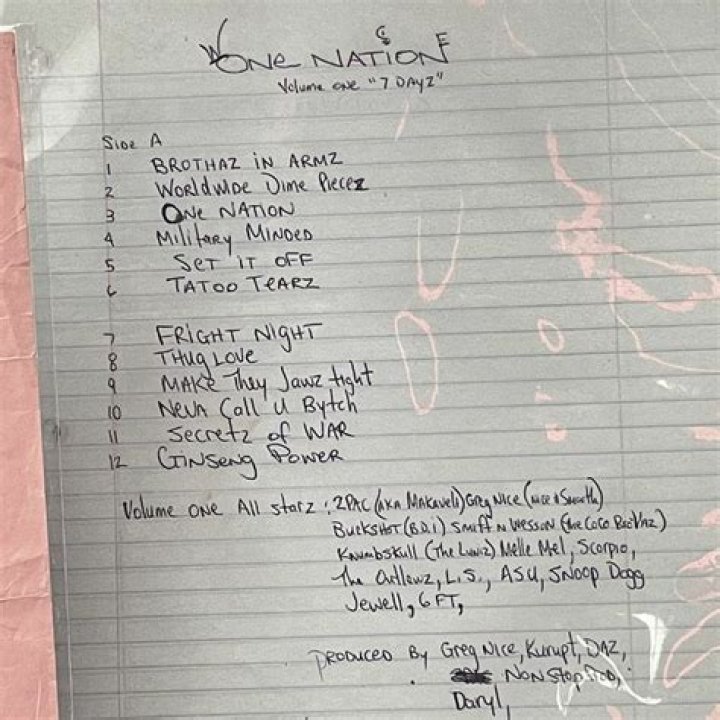 ONE NATION
Volume one "7 DAYZ"
Side A
1 BROTHAZ iN ARMZ
2 Worldwide Dime Piecez
3 ONE NATION
4 Military Minded
5 SET IT OFF
6 TATOO TEARZ
7 FRIGHT NIGHT
8 THUG LOVE
9 MAKE They Jawz tight
10 Neva Call U Bytch
11 Secretz of WAR
12 GINSENG POWER
Volume ONE All starz : 2PAC (AKA Makaveli) Greg Nice (nice & Smooth)
BUCKSHOT (B.D.I) SMIFF N WESSON (the Coco
Knumbskull (The Luniz) Melle Mel, Scorpio,
The Outlawz, L.S., ASU, SNOOP Dogg
Jewell, 6 FT,
PRODUCED By Greg Nice, Kurupt, DAZ,
NON Stop
Daryl,